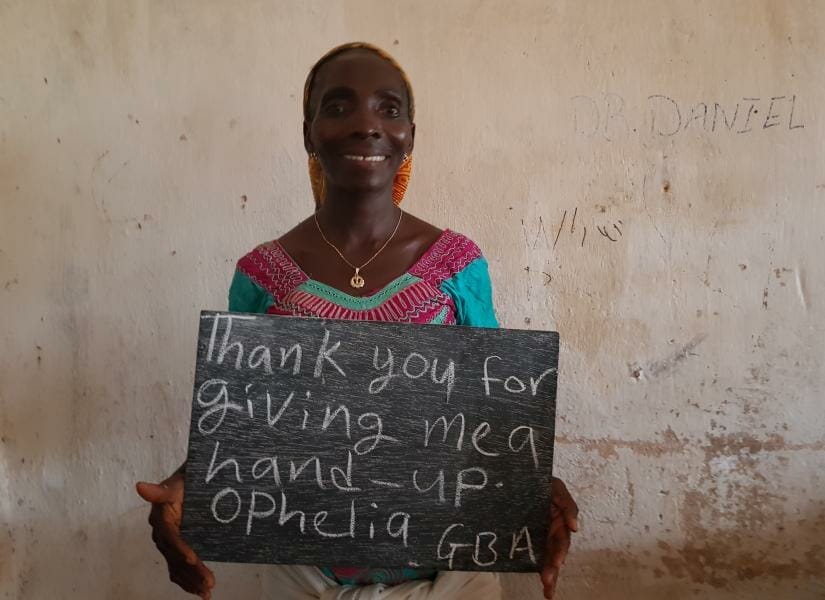 DR. DANIEL
Thank you for
giving me a
hand-up.
Ophelia
GBA